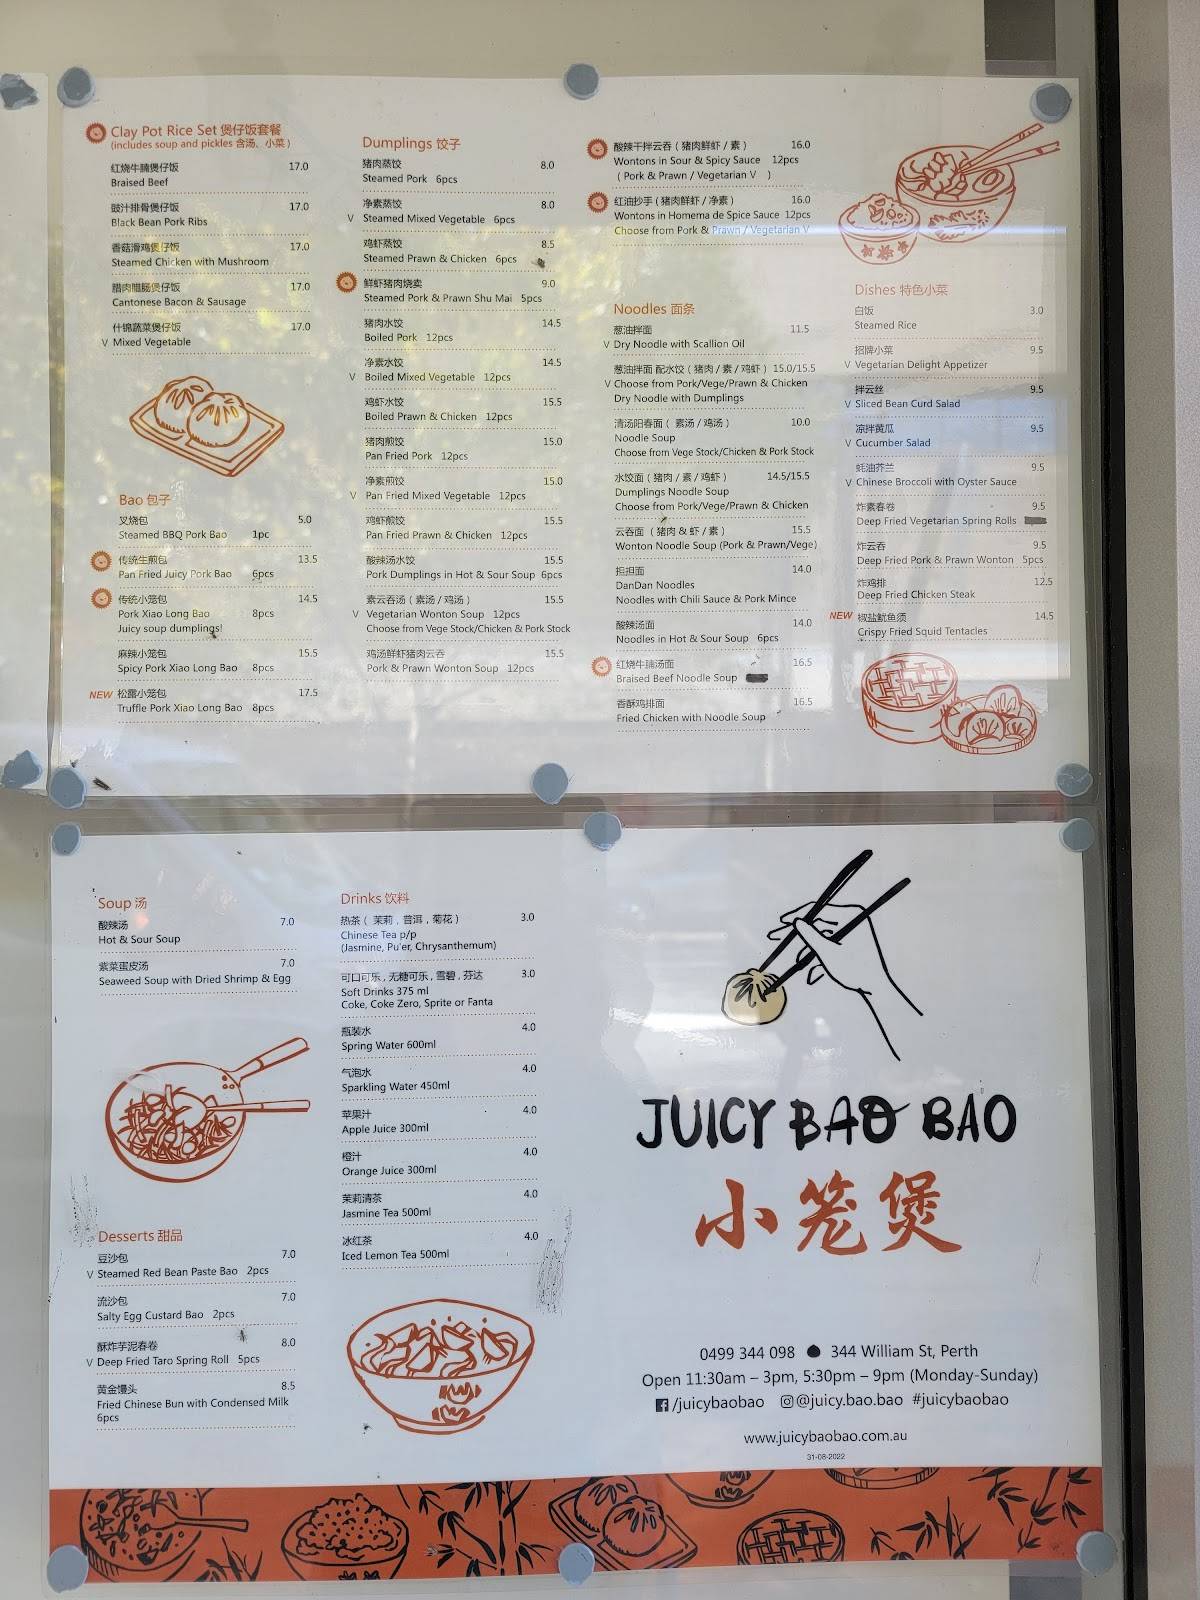 Clay Pot Rice Set 煲仔饭套餐
(includes soup and pickles 含汤、小菜)
红烧牛腩煲仔饭 17.0
Braised Beef
豉汁排骨煲仔饭 17.0
Black Bean Pork Ribs
香菇滑鸡煲仔饭 17.0
Steamed Chicken with Mushroom
腊肉腊肠煲仔饭 17.0
Cantonese Bacon & Sausage
什锦蔬菜煲仔饭 17.0
V Mixed Vegetable
Bao 包子
叉烧包 5.0
Steamed BBQ Pork Bao 1pc
传统生煎包 13.5
Pan Fried Juicy Pork Bao 6pcs
传统小笼包 14.5
Pork Xiao Long Bao 8pcs
Juicy soup dumplings!
麻辣小笼包 15.5
Spicy Pork Xiao Long Bao 8pcs
NEW 松露小笼包 17.5
Truffle Pork Xiao Long Bao 8pcs
Dumplings 饺子
猪肉蒸饺 8.0
Steamed Pork 6pcs
净素蒸饺 8.0
V Steamed Mixed Vegetable 6pcs
鸡虾蒸饺 8.5
Steamed Prawn & Chicken 6pcs
鲜虾猪肉烧卖 9.0
Steamed Pork & Prawn Shu Mai 5pcs
猪肉水饺 14.5
Boiled Pork 12pcs
净素水饺 14.5
V Boiled Mixed Vegetable 12pcs
鸡虾水饺 15.5
Boiled Prawn & Chicken 12pcs
猪肉煎饺 15.0
Pan Fried Pork 12pcs
净素煎饺 15.0
V Pan Fried Mixed Vegetable 12pcs
鸡虾煎饺 15.5
Pan Fried Prawn & Chicken 12pcs
酸辣汤水饺 15.5
Pork Dumplings in Hot & Sour Soup 6pcs
素云吞汤 (素汤 / 鸡汤) 15.5
V Vegetarian Wonton Soup 12pcs
Choose from Vege Stock/Chicken & Pork Stock
鸡汤鲜虾猪肉云吞 15.5
Pork & Prawn Wonton Soup 12pcs
酸辣干拌云吞 (猪肉鲜虾 / 素) 16.0
Wontons in Sour & Spicy Sauce 12pcs
(Pork & Prawn / Vegetarian V )
红油抄手 (猪肉鲜虾 / 净素) 16.0
Wontons in Homema de Spice Sauce 12pcs
Choose from Pork & Prawn / Vegetarian V
Noodles 面条
葱油拌面 11.5
V Dry Noodle with Scallion Oil
葱油拌面 配水饺 (猪肉 / 素 / 鸡虾) 15.0/15.5
V Choose from Pork/Vege/Prawn & Chicken
Dry Noodle with Dumplings
清汤阳春面 ( 素汤 / 鸡汤 ) 10.0
Noodle Soup
Choose from Vege Stock/Chicken & Pork Stock
水饺面 (猪肉 / 素 / 鸡虾) 14.5/15.5
Dumplings Noodle Soup
Choose from Pork/Vege/Prawn & Chicken
云吞面 (猪肉 & 虾 / 素) 15.5
Wonton Noodle Soup (Pork & Prawn/Vege)
担担面 14.0
DanDan Noodles
Noodles with Chili Sauce & Pork Mince
酸辣汤面 14.0
Noodles in Hot & Sour Soup 6pcs
红烧牛腩汤面 16.5
Braised Beef Noodle Soup
香酥鸡排面 16.5
Fried Chicken with Noodle Soup
Dishes 特色小菜
白饭 3.0
Steamed Rice
招牌小菜 9.5
V Vegetarian Delight Appetizer
拌云丝 9.5
V Sliced Bean Curd Salad
凉拌黄瓜 9.5
V Cucumber Salad
蚝油芥兰 9.5
V Chinese Broccoli with Oyster Sauce
炸素春卷 9.5
Deep Fried Vegetarian Spring Rolls
炸云吞 9.5
Deep Fried Pork & Prawn Wonton 5pcs
炸鸡排 12.5
Deep Fried Chicken Steak
NEW 椒盐鱿鱼须 14.5
Crispy Fried Squid Tentacles
Soup 汤
酸辣汤 7.0
Hot & Sour Soup
紫菜蛋皮汤 7.0
Seaweed Soup with Dried Shrimp & Egg
Desserts 甜品
豆沙包 7.0
V Steamed Red Bean Paste Bao 2pcs
流沙包 7.0
Salty Egg Custard Bao 2pcs
酥炸芋泥春卷 8.0
V Deep Fried Taro Spring Roll 5pcs
黄金馒头 8.5
Fried Chinese Bun with Condensed Milk
6pcs
Drinks 饮料
热茶 ( 茉莉 , 普洱 , 菊花 ) 3.0
Chinese Tea p/p
(Jasmine, Pu'er, Chrysanthemum)
可口可乐 , 无糖可乐 , 雪碧 , 芬达 3.0
Soft Drinks 375 ml
Coke, Coke Zero, Sprite or Fanta
瓶装水 4.0
Spring Water 600ml
气泡水 4.0
Sparkling Water 450ml
苹果汁 4.0
Apple Juice 300ml
橙汁 4.0
Orange Juice 300ml
茉莉清茶 4.0
Jasmine Tea 500ml
冰红茶 4.0
Iced Lemon Tea 500ml
JUICY BAO BAO
小笼煲
0499 344 098 ● 344 William St, Perth
Open 11:30am – 3pm, 5:30pm – 9pm (Monday-Sunday)
/juicybaobao @juicy.bao.bao #juicybaobao
www.juicybaobao.com.au
31-08-2022